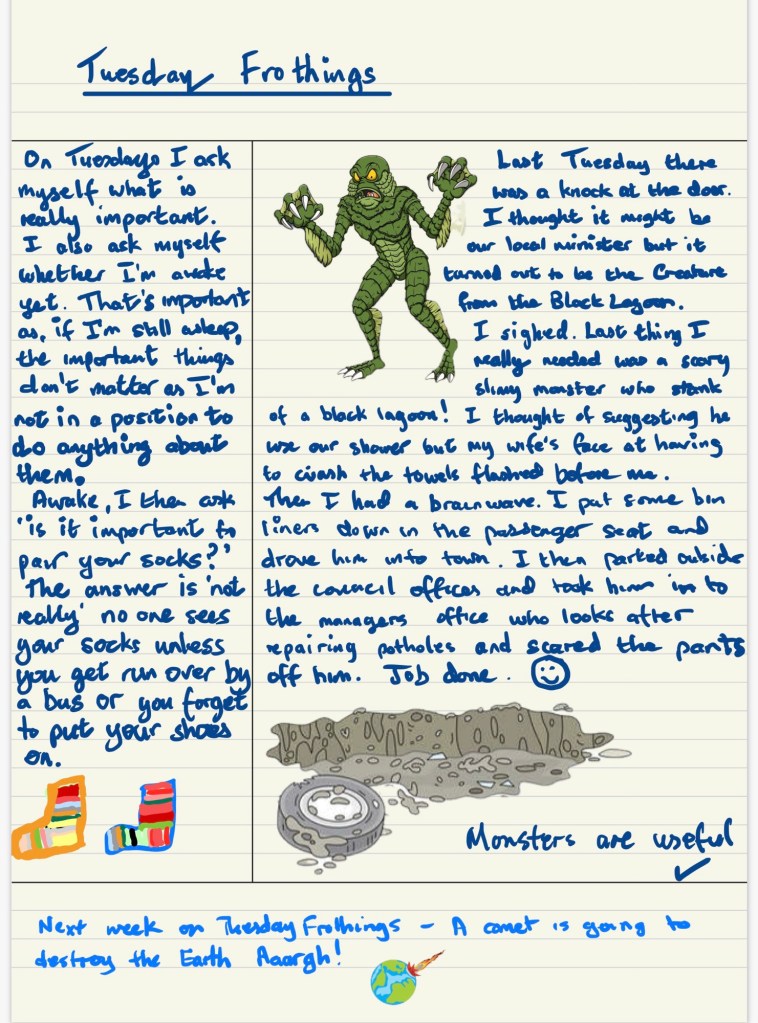 Tuesday Frothings
On Tuesdays I ask
myself what is
really important.
I also ask myself
whether I'm awake
yet. That's important
as, if I'm still asleep,
the important things
don't matter as I'm
not in a position to
do anything about
them.
Awake, I then ask
'is it important to
pair your socks?'
The answer is 'not
really' no one sees
your socks unless
you get run over by
a bus or you forget
to put your shoes
on.
Last Tuesday there
was a knock at the door.
I thought it might be
our local minister but it
turned out to be the Creature
from the Black Lagoon.
I sighed. Last thing I
really needed was a scary
slimy monster who stank
of a black lagoon! I thought of suggesting he
use our shower but my wife's face at having
to wash the towels flashed before me.
Then I had a brainwave. I put some bin
liners down in the passenger seat and
drove him into town. I then parked outside
the council offices and took him in to
the managers office who looks after
repairing potholes and scared the pants
off him. Job done.
Monsters are useful
Next week on Tuesday Frothings - A comet is going to
destroy the Earth Aaargh!